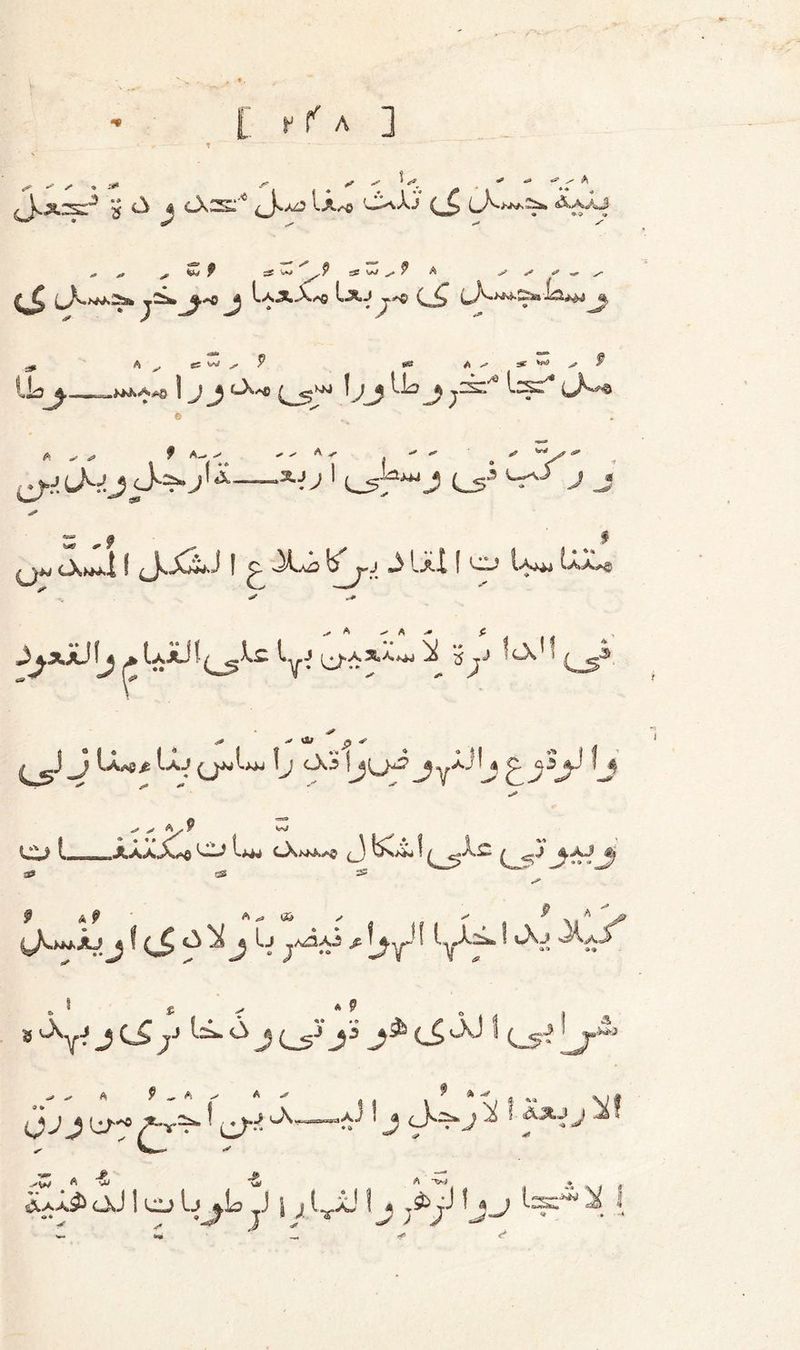 [ ٢٤٨ ]
بنية جسدي ثلث مفاصل محدودة فجعل
وسط جسدي مربعا مكعبا ومؤخر جسدي
مدمجا مخروطا وراسي مدورا مبسوطا
وركب في وسطي اربعة ارجل ويدين
متناسبات المقادير كاضلاع الشكل المسدس
في الدائرة لاستعين بها على القيام والقعود
والوقوع والنهوض واقدر اساس بناء منازلي
وبيوتي على اشكال مسدسات مكتنفات
كيلا يدخلها الهواء فيضر باولادي او يفسد
شرابي الذي هو قوتي وذخائري وبهذه
الاربعة الارجل واليدين اجمع من ورق
الاشجار والزهر والثمار الرطوبات الدهنية